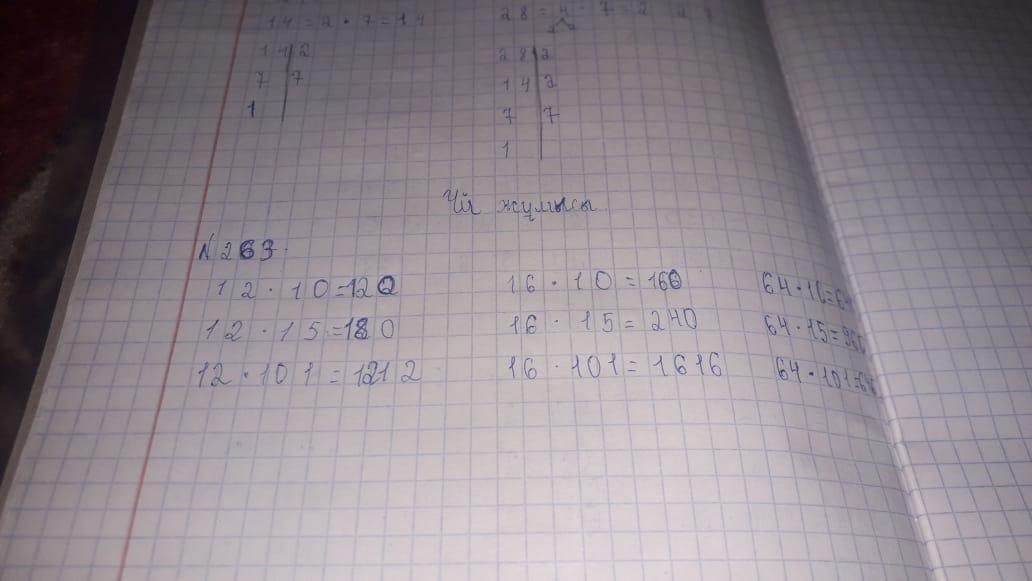 14 = 2 · 7 = 14
28 = 4 · 7 = 2
2 2
14|2
7|7
1
28|2
14|2
7|7
1
Үй жұмысы
№263.
12 · 10=120
12 · 15=180
12 · 101 = 1212
16 · 10 = 160
16 · 15 = 240
16 · 101 = 1616
64 · 10=64
64 · 15=960
64 · 101=646